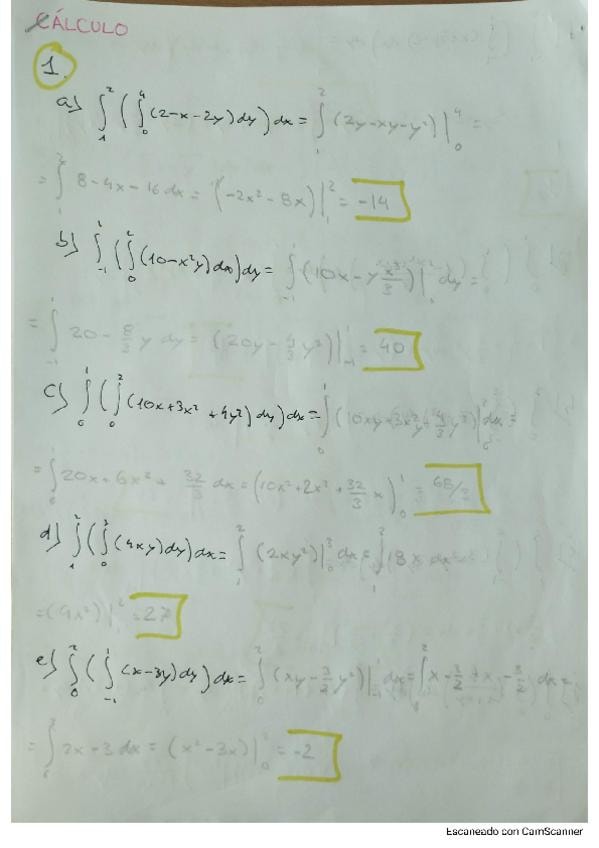 CÁLCULO
1.
a) ∫₁² (∫₀⁴ (2-x-2y) dy) dx = ∫₁² (2y-xy-y²)|₀⁴ =
= ∫₁² 8-4x-16 dx = (-2x²-8x)|₁² = -14
b) ∫₋₁¹ (∫₀² (10-x²y) dx) dy = ∫₋₁¹ (10x - y x³/3)| dy =
= ∫₋₁¹ 20 - 8/3 y dy = (20y - 4/3 y²)|₋₁¹ = 40
c) ∫₀¹ (∫₀² (10x+3x²+4y²) dy) dx = ∫₀¹ (10xy+3x²y+4/3 y³)|₀² dx =
= ∫₀¹ 20x+6x²+ 32/3 dx = (10x²+2x³+32/3 x)₀¹ = 68/3
d) ∫₁² (∫₀³ (4xy) dy) dx = ∫₁² (2xy²)|₀³ dx = ∫₁² 18x dx
= (9x²)|₁² = 27
e) ∫₀² (∫₋₁¹ (x-3y) dy) dx = ∫₀² (xy - 3/2 y²)|₋₁¹ dx = ∫₀² x - 3/2 + x - 3/2 dx =
= ∫₀² 2x-3 dx = (x²-3x)|₀² = -2
Escaneado con CamScanner